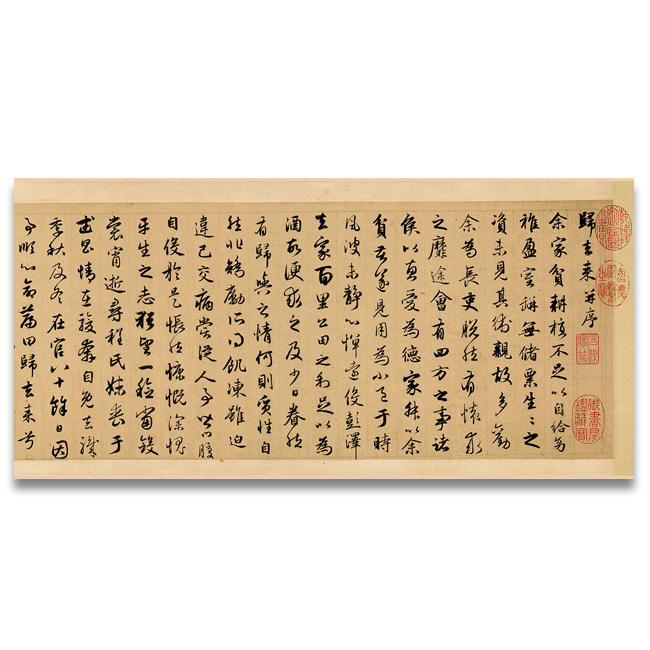 歸去來并序
余家貧耕植不足以自給幼
稚盈室缾無儲粟生生之
資未見其術親故多勸
余為長吏脫然有懷求
之靡途會有四方之事諸
侯以惠愛為德家叔以余
貧苦遂見用為小邑于時
風波未靜心憚遠役彭澤
去家百里公田之利足以為
酒故便求之及少日眷然
有歸與之情何則質性自
然非矯勵所得飢凍雖迫
違己交病嘗從人事皆口腹
自役於是悵然慷慨深愧
平生之志猶望一稔當斂
裳宵逝尋程氏妹喪于
武昌情在駿奔自免去職
季秋及冬在官八十餘日因
事順心命篇曰歸去來兮
御書房鑑藏寶